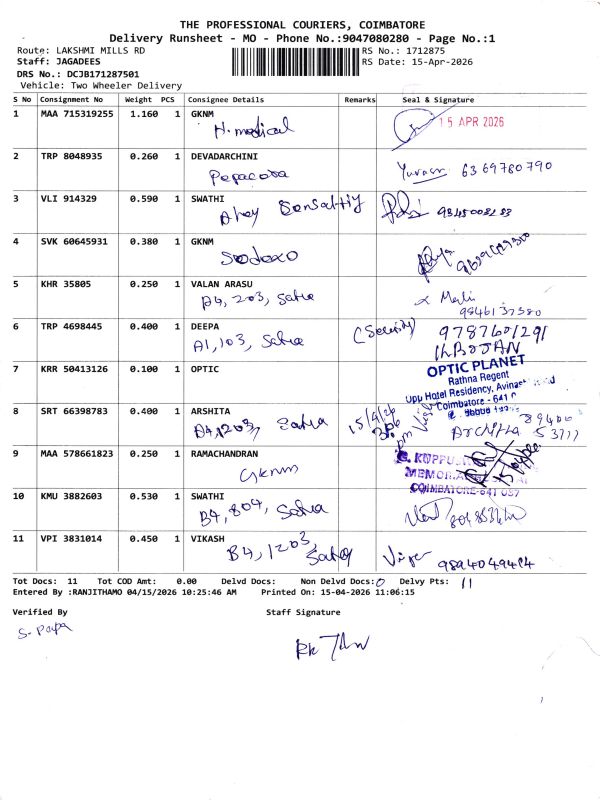 THE PROFESSIONAL COURIERS, COIMBATORE
Delivery Runsheet - MO - Phone No.:9047080280 - Page No.:1
Route: LAKSHMI MILLS RD
RS No.: 1712875
Staff: JAGADEES
RS Date: 15-Apr-2026
DRS No.: DCJB171287501
Vehicle: Two Wheeler Delivery
S No Consignment No Weight PCS Consignee Details Remarks Seal & Signature
1 MAA 715319255 1.160 1 GKNM
H. medical
15 APR 2026
2 TRP 8048935 0.260 1 DEVADARCHINI
6369780790
3 VLI 914329 0.590 1 SWATHI
4 SVK 60645931 0.380 1 GKNM
Sodexo
5 KHR 35805 0.250 1 VALAN ARASU
A4, 203, Satva
6 TRP 4698445 0.400 1 DEEPA
A1, 103, Satva
(Security) 9787601291
7 KRR 50413126 0.100 1 OPTIC
OPTIC PLANET
Rathna Regent
Opp Hotel Residency,
Coimbatore - 641
8 SRT 66398783 0.400 1 ARSHITA
A4, 1203, Satva
15/4/26
9 MAA 578661823 0.250 1 RAMACHANDRAN
Gknm
COIMBATORE-641 037
10 KMU 3882603 0.530 1 SWATHI
B4, 804, Satva
11 VPI 3831014 0.450 1 VIKASH
B4, 1203,
Tot Docs: 11 Tot COD Amt: 0.00 Delvd Docs: Non Delvd Docs: 0 Delvy Pts: 11
Entered By :RANJITHAMO 04/15/2026 10:25:46 AM Printed On: 15-04-2026 11:06:15
Verified By Staff Signature
S. Papa